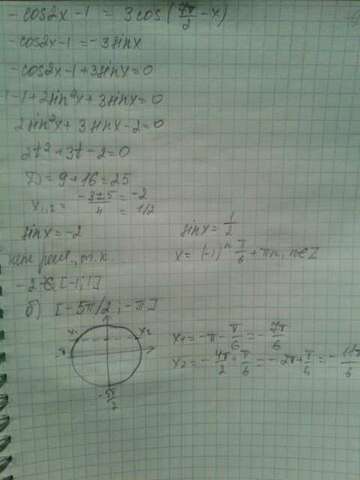 -cos2x-1 = 3cos(7π/2 - x)
-cos2x-1 = -3sinx
-cos2x-1+3sinx=0
-1+2sin²x+3sinx=0
2sin²x+3sinx-2=0
2t²+3t-2=0
D=9+16=25
x₁,₂= (-3±5)/4 = -2 = 1/2
sinx=-2 sinx=1/2
реш., т.к x=(-1)ⁿ π/6+πn, n∈Z
-2∉[-1;1]
б) [-5π/2; -π]
x₁ x₂ x₁=-π-π/6=-7π/6
x₂=-4π/2+π/6=-2π+π/6=-11π/6
-5π/2